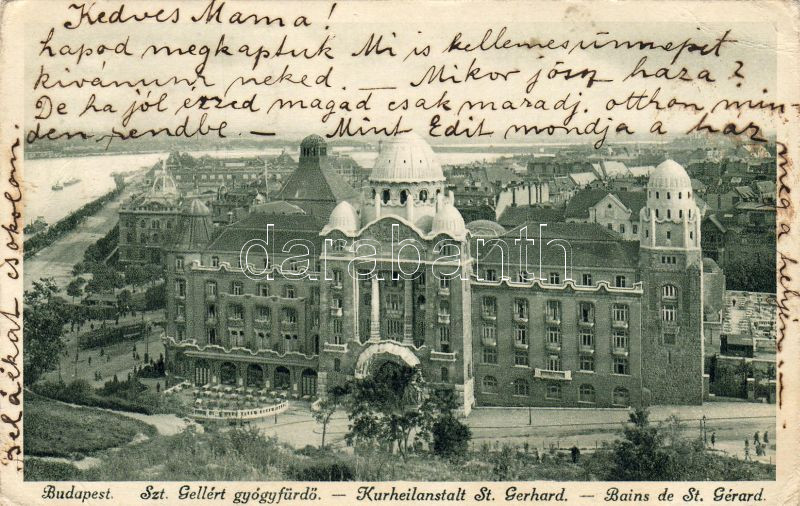 Kedves Mama!
hapod megkaptuk Mi is kellemes ünnepit
kivánunk neked. — Mikor jösz haza?
De ha jól érzed magad csak maradj. otthon min-
den rendbe. — Mint Edit mondja a ház
még a helyin
Béláékat csokolom.
darabanth
Budapest. Szt. Gellért gyógyfürdő. — Kurheilanstalt St. Gerhard. — Bains de St. Gérard.